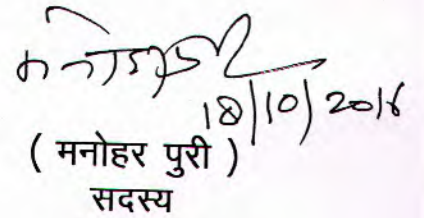 18/10/2016
( मनोहर पुरी )
सदस्य